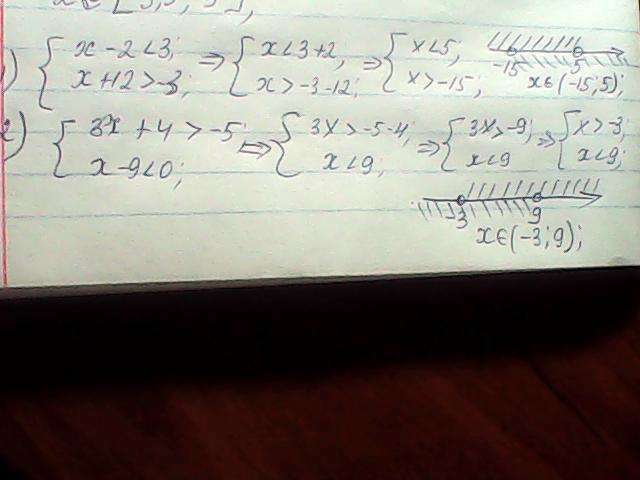 x ∈ [3,5; 5];
1) { x - 2 < 3; x + 12 > -3; ⇒ { x < 3+2, x > -3-12; ⇒ { x < 5, x > -15; -15 5 x∈(-15;5);
2) { 3x + 4 > -5; x - 9 < 0; ⇔ { 3x > -5-4, x < 9; ⇒ { 3x > -9; x < 9 ⇒ { x > -3, x < 9;
-3 9
x∈(-3;9);